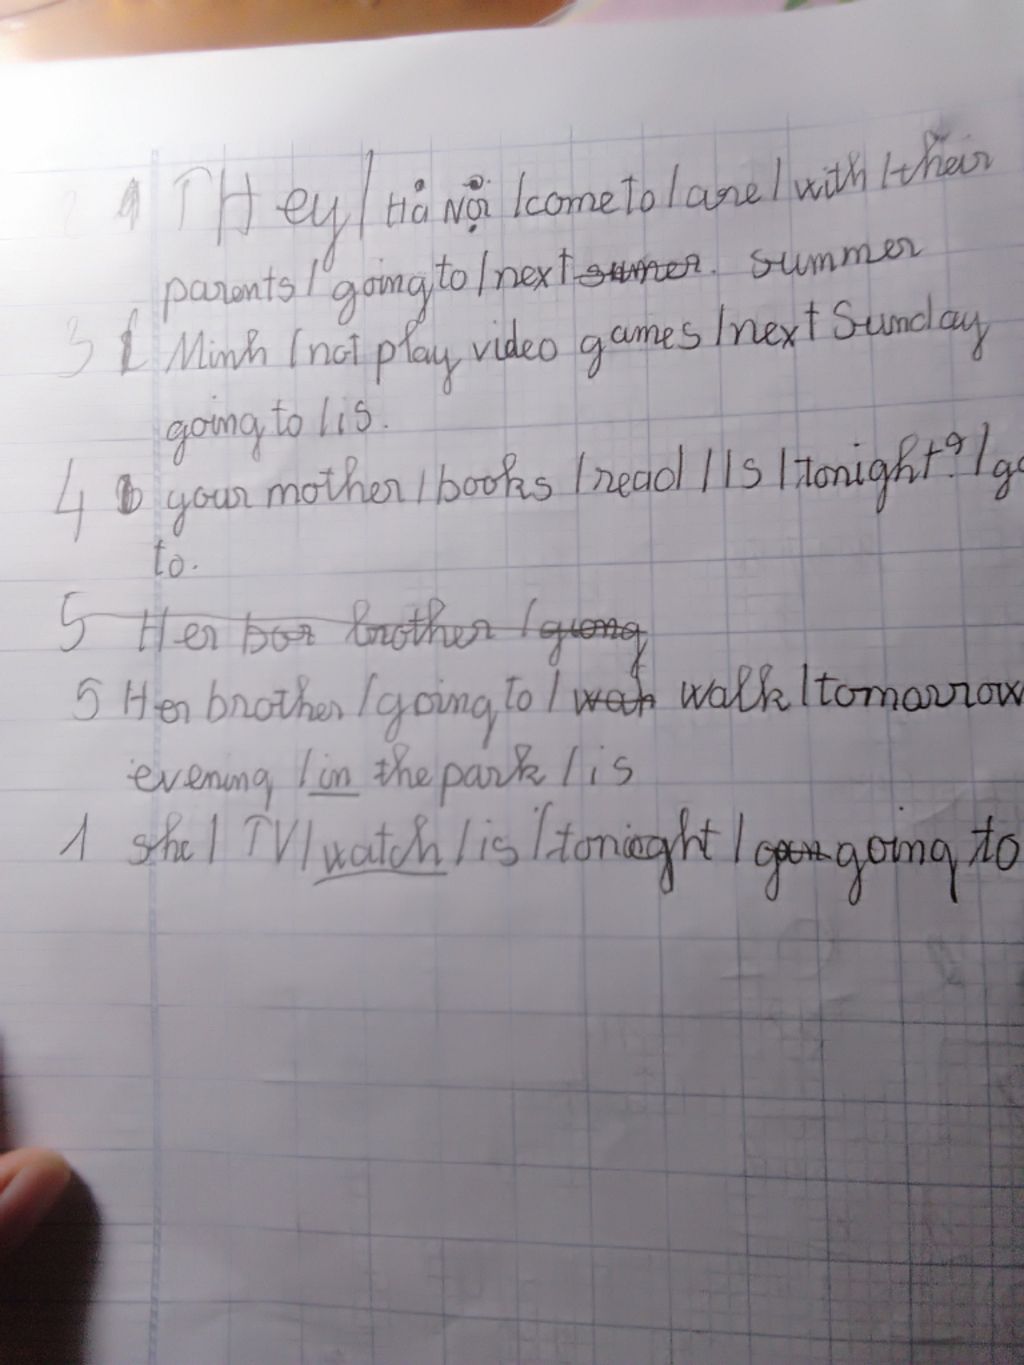 2 THey / Hà Nội / come to / are / with / their
parents / going to / next sumer. summer
3 Minh / not play video games / next Sunday
going to / is.
4 your mother / books / read / Is / tonight? / go
to.
5 Her bor brother / giong
5 Her brother / going to / wah walk / tomorrow
evening / in the park / is
1 she / TV / watch / is / tonight / going to